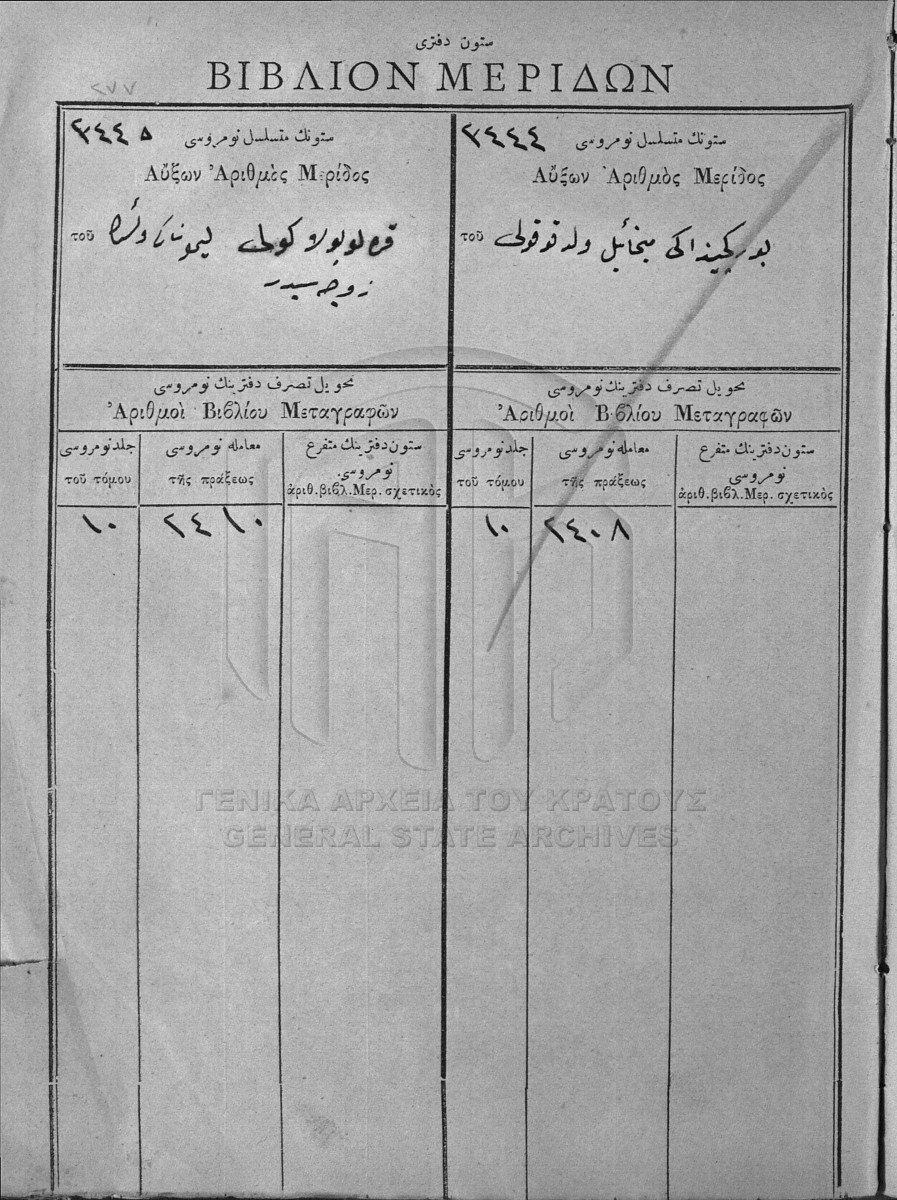 ستون دفتری
ΒΙΒΛΙΟΝ ΜΕΡΙΔΩΝ
٢٧٧
ستونك متسلسل نومروسی ٣٤٤٤
Αὔξων Ἀριθμὸς Μερίδος
τοῦ میخائیل ولد
تحویل تصرف دفترینك نومروسی
Ἀριθμοὶ Βιβλίου Μεταγραφῶν
جلد نومروسی
τοῦ τόμου
معامله نومروسی
τῆς πράξεως
ستون دفترینك متفرع
نومروسی
ἀριθ. βιβλ. Μερ. σχετικὸς
١٠ ٢٤٠٨
ستونك متسلسل نومروسی ٣٤٤٥
Αὔξων Ἀριθμὸς Μερίδος
τοῦ
زوجه سیدر
تحویل تصرف دفترینك نومروسی
Ἀριθμοὶ Βιβλίου Μεταγραφῶν
جلد نومروسی
τοῦ τόμου
معامله نومروسی
τῆς πράξεως
ستون دفترینك متفرع
نومروسی
ἀριθ. βιβλ. Μερ. σχετικὸς
١٠ ٢٤١٠
ΓΕΝΙΚΑ ΑΡΧΕΙΑ ΤΟΥ ΚΡΑΤΟΥΣ
GENERAL STATE ARCHIVES